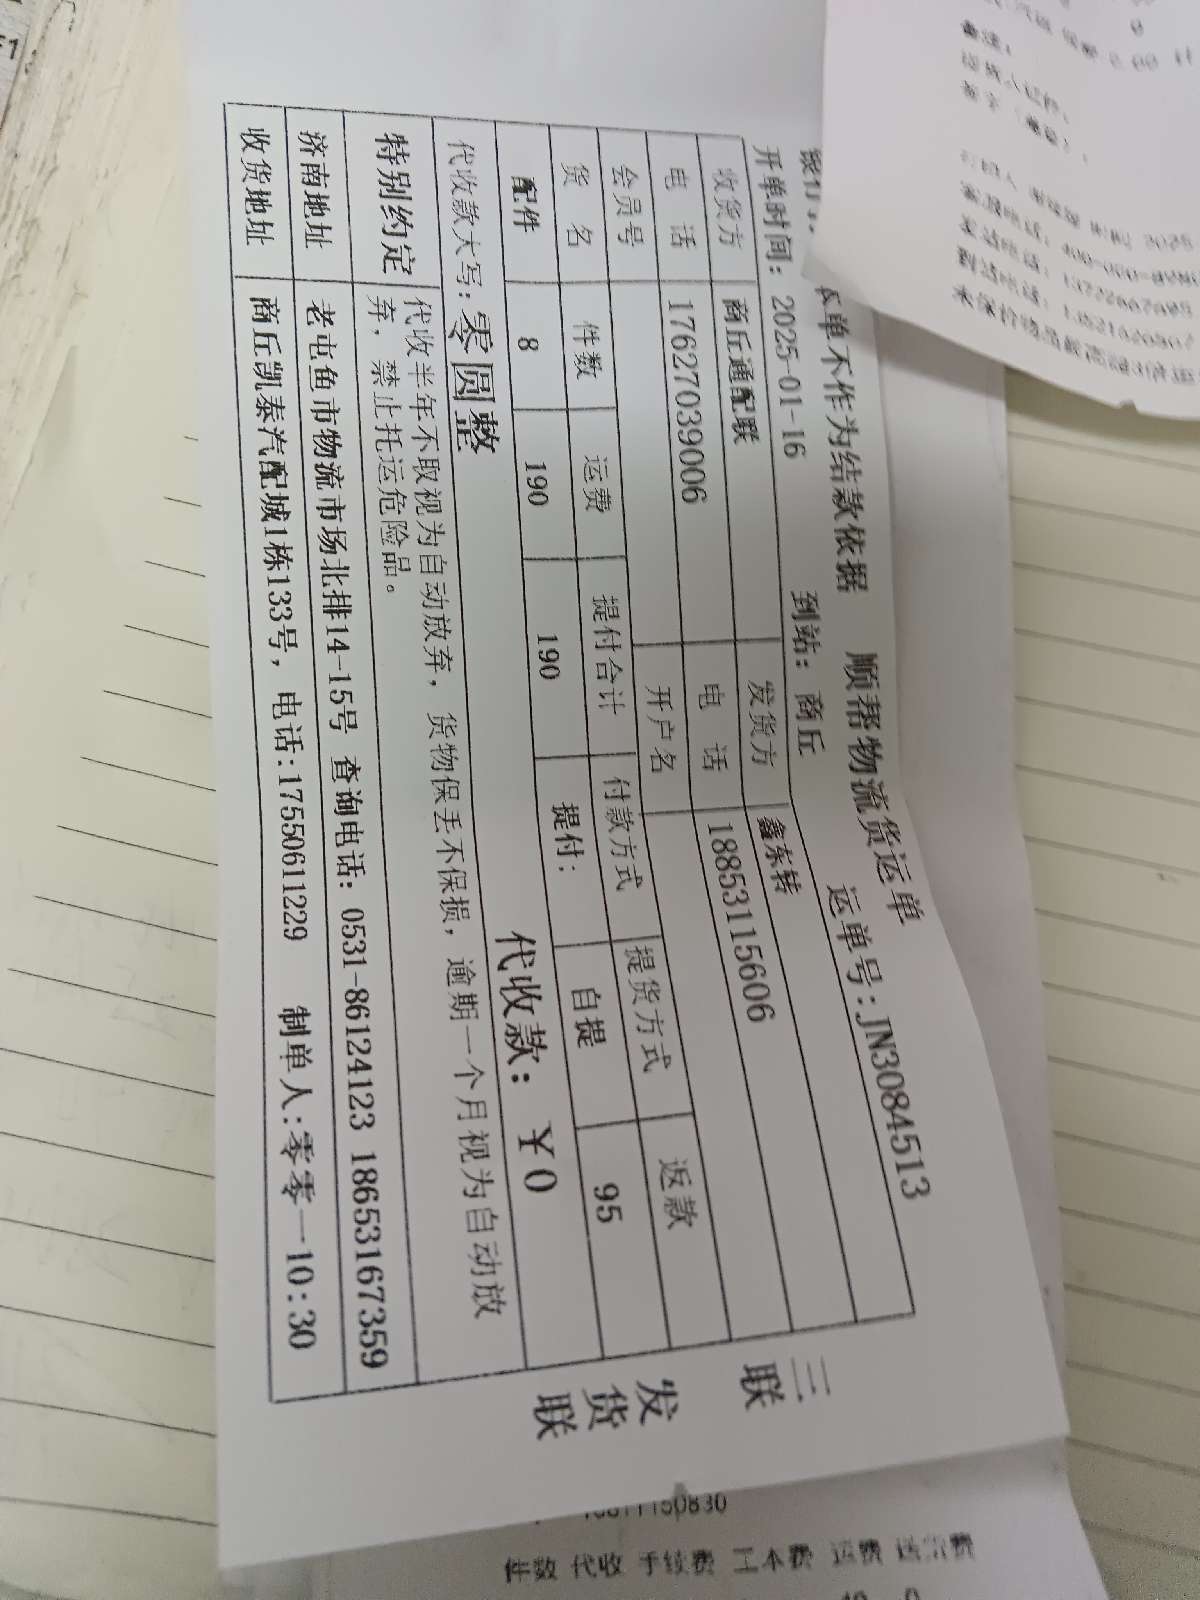 本单不作为结款依据 顺帮物流货运单
开单时间: 2025-01-16 到站: 商丘 运单号:JN3084513
收货方 商丘通配联 发货方 鑫东转
电 话 17627039006 电 话 18853115606
会员号 开户名
货 名 件数 运费 提付合计 付款方式 提货方式 返款
配件 8 190 190 提付: 自提 95
代收款大写:零圆整 代收款: ￥0
特别约定 代收半年不取视为自动放弃, 货物保丢不保损, 逾期一个月视为自动放
弃, 禁止托运危险品。
济南地址 老屯鱼市物流市场北排14-15号 查询电话: 0531-86124123 18653167359
收货地址 商丘凯泰汽配城1栋133号, 电话:17550611229 制单人:零零一10:30
三联
发货联
备注:
件数 代收 手续费 工本费 运费 送货费